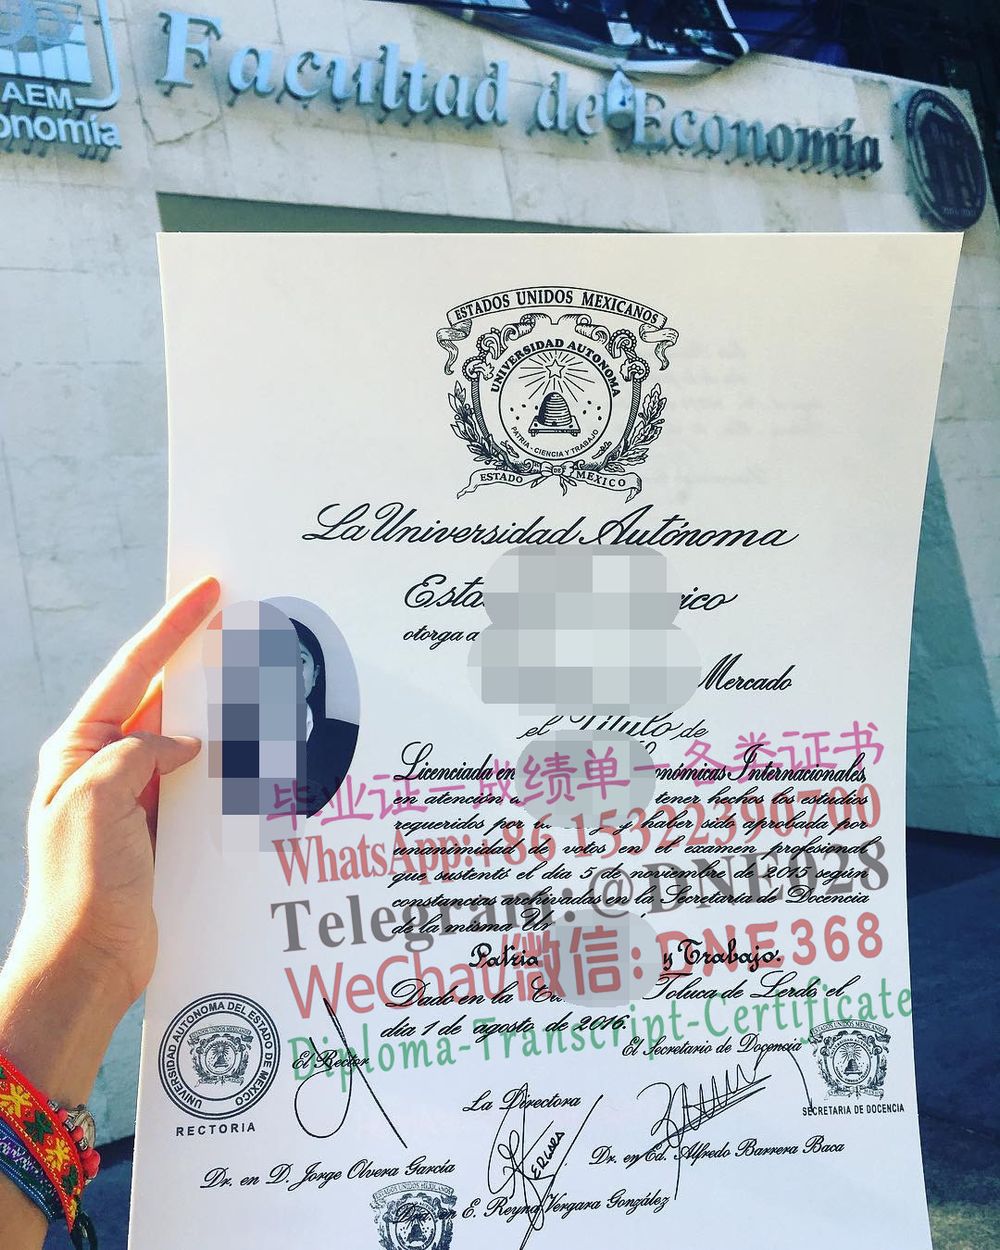 AEM
onomía
Facultad de Economía
ESTADOS UNIDOS MEXICANOS
UNIVERSIDAD AUTONOMA
PATRIA - CIENCIA Y TRABAJO
ESTADO DE MEXICO
La Universidad Autónoma
Esta ico
otorga a
Mercado
el Título de
Licenciada en onómicas Internacionales
en atención a tener hechos los estudios
requeridos por y haber sido aprobada por
unanimidad de votos en el examen profesional
que sustentó el día 5 de noviembre de 2015 según
constancias archivadas en la Secretaría de Docencia
de la misma
Patria y Trabajo.
Dado en la Toluca de Lerdo, el
día 1 de agosto de 2016.
毕业证-成绩单-各类证书
WhatsApp:+86 15322391700
Telegram: @DNE928
WeChat/微信: DNE368
Diploma-Transcript-Certificate
El Rector
El Secretario de Docencia
La Directora
UNIVERSIDAD AUTONOMA DEL ESTADO DE MEXICO
RECTORIA
SECRETARIA DE DOCENCIA
Dr. en D. Jorge Olvera García
Dr. en Ed. Alfredo Barrera Baca
en E. Reyna Vergara González